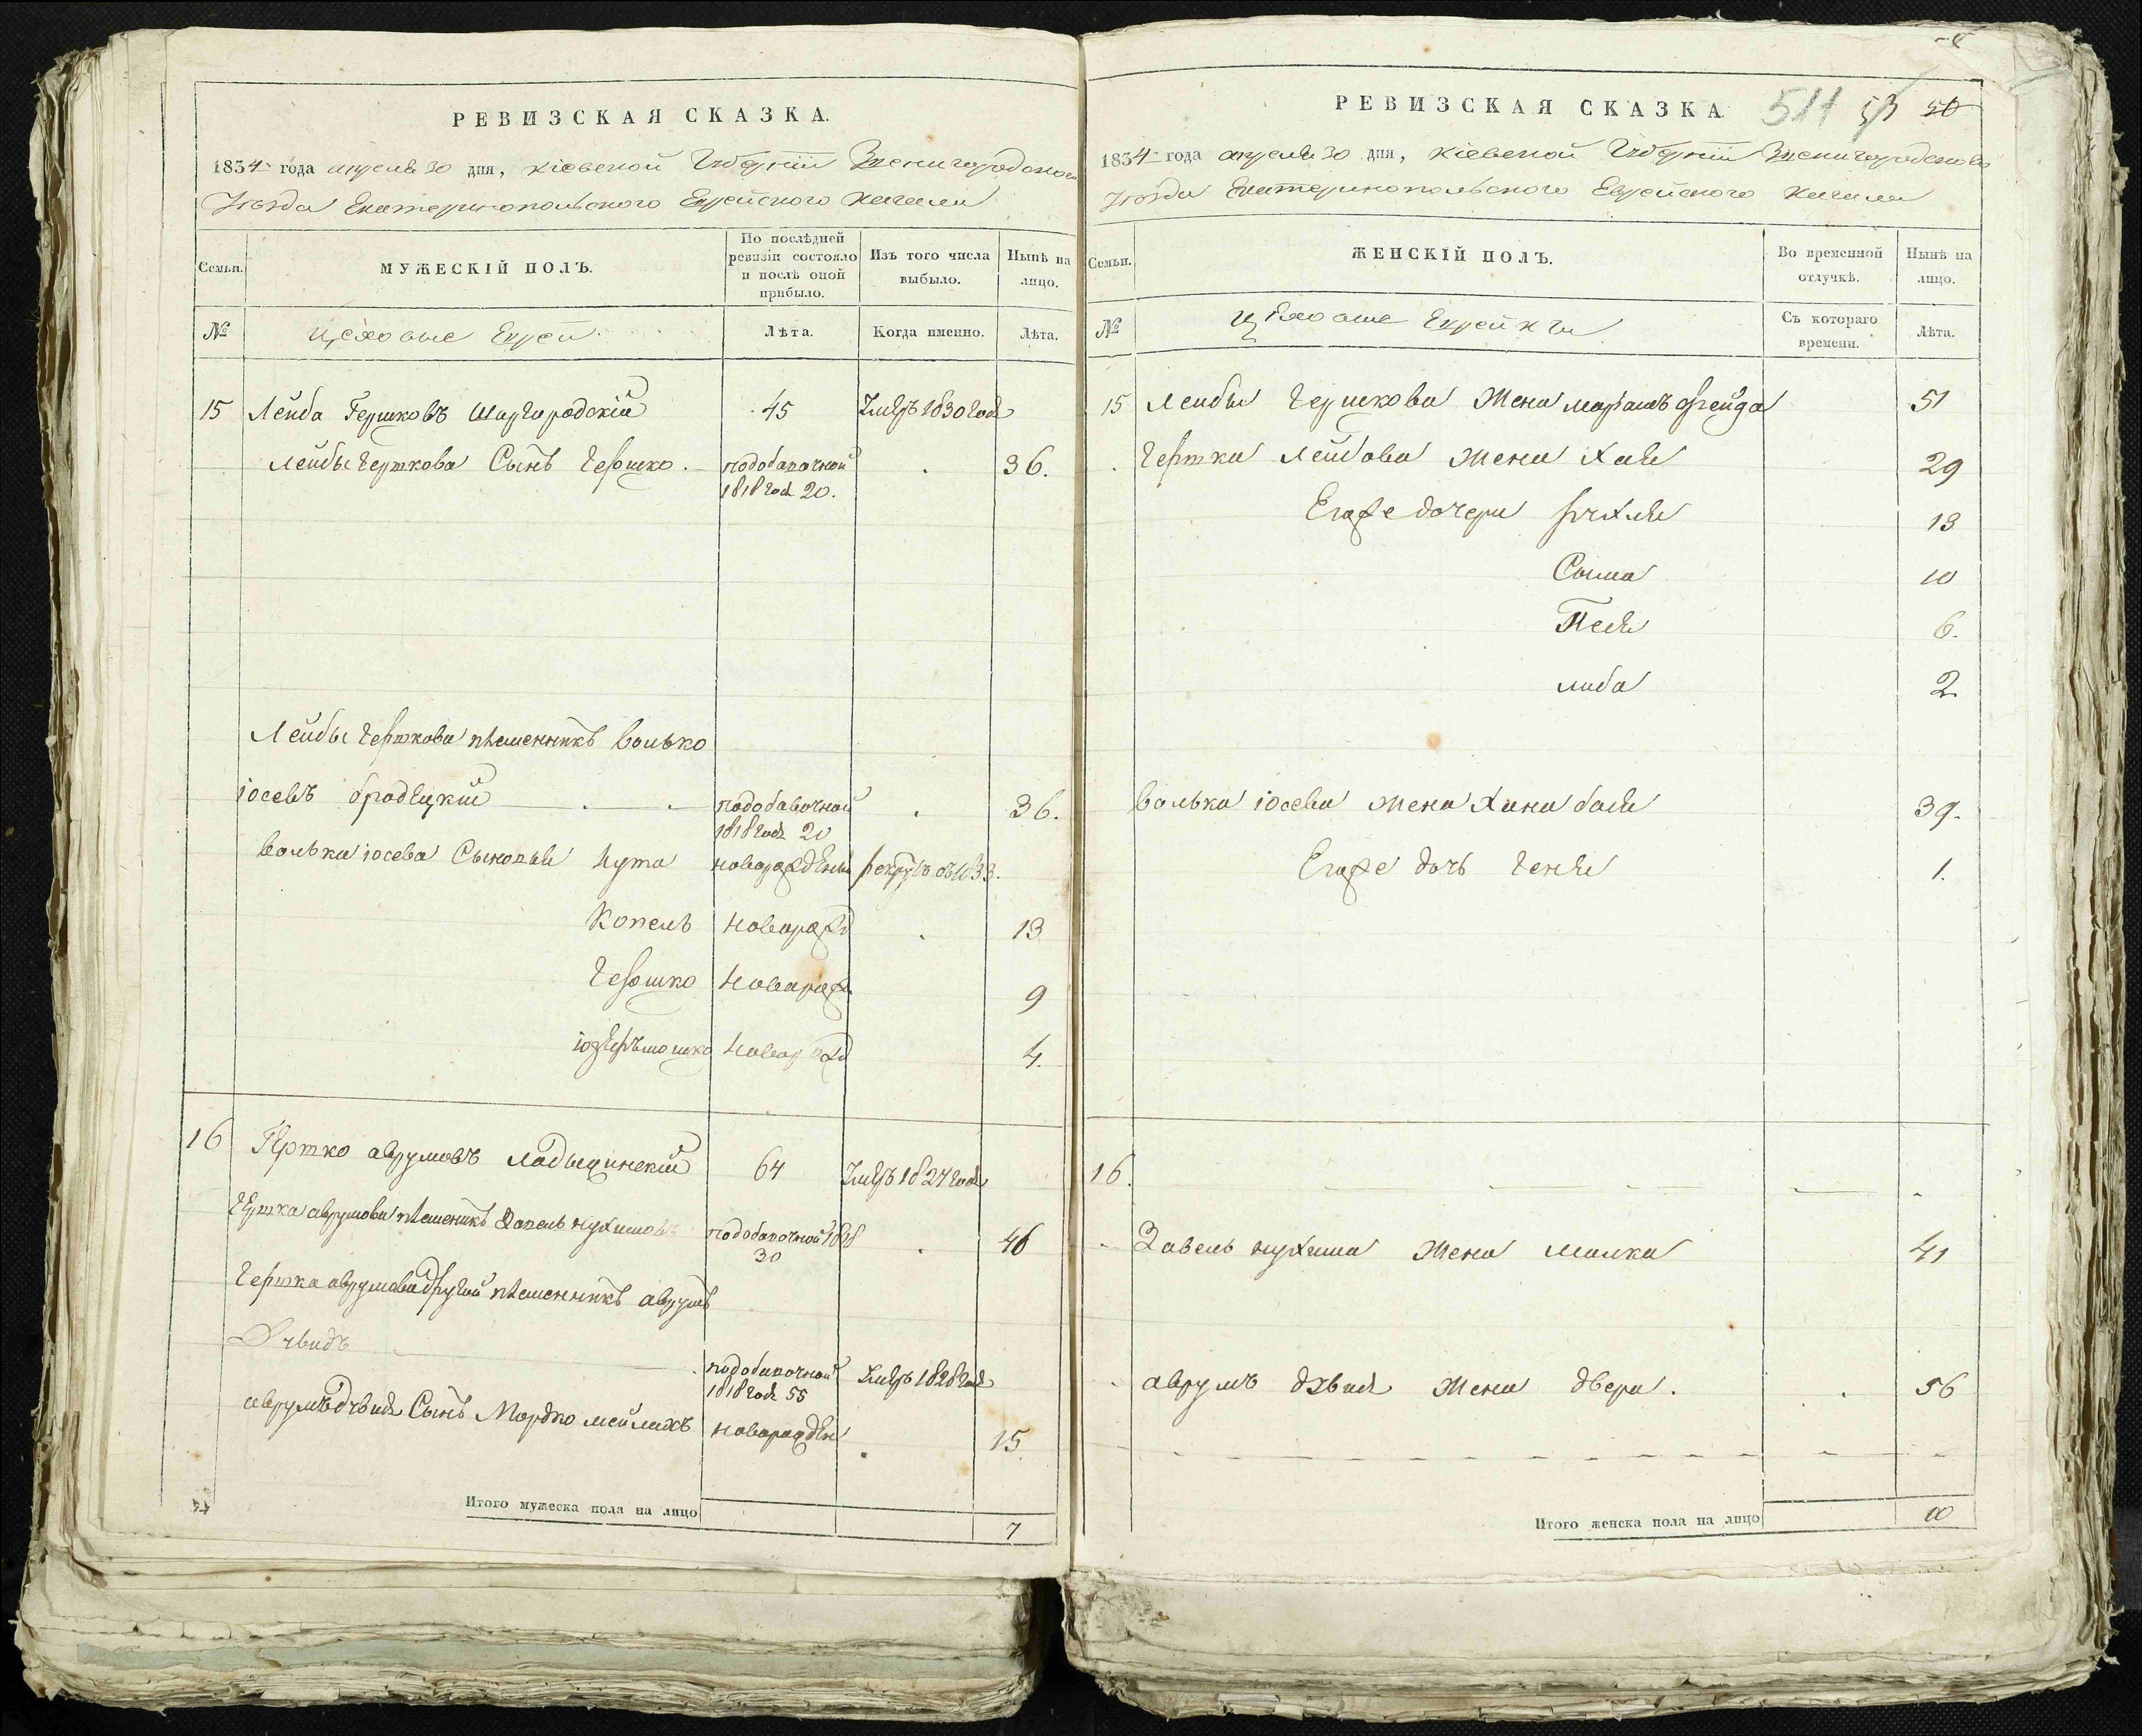 РЕВИЗСКАЯ СКАЗКА.
1834 года апреля 30 дня, Кіевской Губерніи Звенигородского
Уезда Екатеринопольского Еврейского Кагала
Семьи.
МУЖЕСКІЙ ПОЛЪ.
По послѣдней ревизіи состояло и послѣ оной прибыло.
Изъ того числа выбыло.
Нынѣ на лицо.
№
Цеховые Евреи
Лѣта.
Когда именно.
Лѣта.
15 Лейба Гершковъ Шаргородскій 45 Умеръ 1830 года
Лейбы Гершкова Сынъ Гершко. подобавочной 1818 года 20. 36.
Лейбы Гершкова племенникъ Волько
іосевъ бродецкій подобавочной 1818 года 20 36.
Волька іосева Сыновья Нута новорожденный рекрутъ 1833.
Копель Новорожд 13
Гершко Новорожд 9
іозеръмошко Новорожд 4.
16 Гершко аврумовъ ладыжинскій 64 Умеръ 1827 года
Гершка аврумова племеникъ Завель нухимовъ подобавочной 1818 30 46
Гершка аврумова другой племенникъ аврумъ
Дувидъ подобавочной 1818 года 55 Умеръ 1828 года
аврумъ дувида Сынъ Мордко мейлахъ новорожден 15.
Итого мужеска пола на лицо 7
РЕВИЗСКАЯ СКАЗКА 511 50
1834 года апреля 30 дня, Кіевской Губерніи Звенигородского
Уезда Екатеринопольского Еврейского Кагала
Семьи.
ЖЕНСКІЙ ПОЛЪ.
Во временной отлучкѣ.
Нынѣ на лицо.
№
Цеховые Еврейки
Съ котораго времени.
Лѣта.
15 Лейбы Гершкова Жена Маріамъ фрейда 51
Гершка Лейбова Жена Хая 29
Егоже дочери Рухля 13
Сыма 10
Песя 6.
либа 2
Волька іосева Жена Хана бася 39.
Егоже дочь Геня 1.
16.
Завель нухима Жена Малка 41
аврумъ дувида Жена двера. 56
Итого женска пола на лицо 10